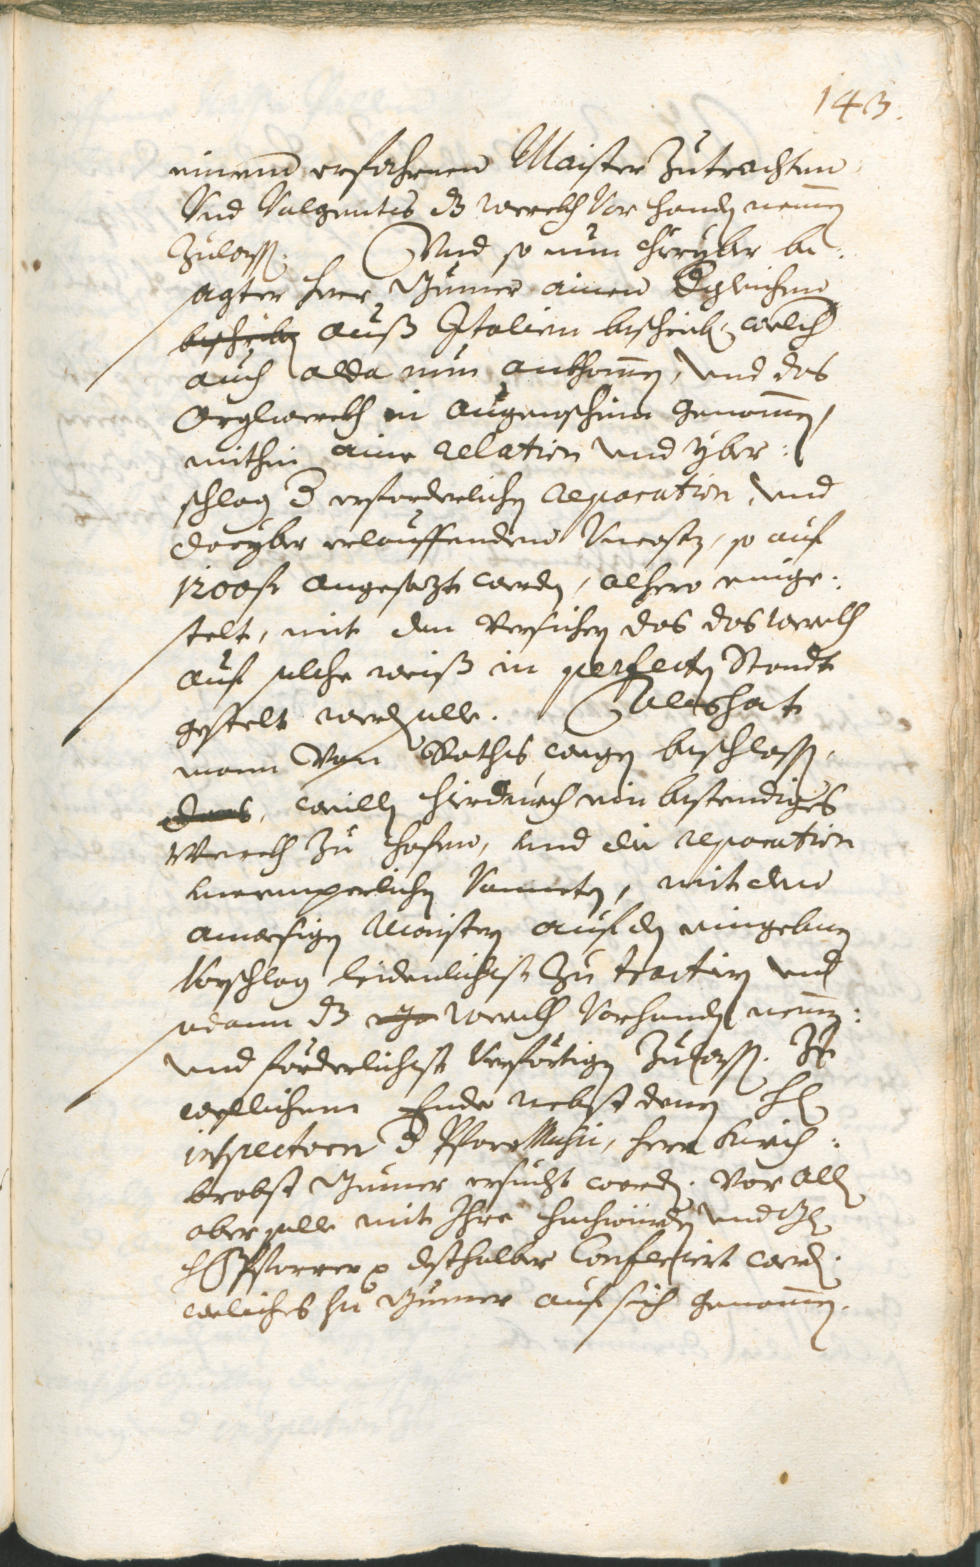 143.
einem erfahrnen Maister zutrachten
Und Volgentes dz werckh Vor handen nemmen
zulassen. Und so nun hieryber be:
sagter herr Jnnner ainen dergleichen
auß Italien beschriben, welcher
auch alda nun ankhommen, und das
Orglwerckh in augenschein genommen,
mithin aine relation und yber:
schlag der erforderlichen reparation, und
daryber erlauffenden Uncosten, so auf
1200 fl angesezt worden, alhero einge:
stelt, mit dem versichern das das werckh
auf solche weiß in perfecten Standt
gestelt werden solle. Also hat
mann Von Rathes wegen beschlossen,
weillen hierdurch ein bestendiges
Werckh zu hofen, und die reparation
Vonneten, mit dem
anwesigen Maistern auf den eingebnen
Vorschlag leidenlichist zu tractirn und
sodann dz werckh Vorhanden nemmen:
und förderlichist Verförtigen zulassen. Zu
wellichem Ende nebst denen herrn
inspectorn der PfarrMusic, herr Kirch:
brobst ersucht worden. Vor allen
aber solle mit Ihro hochwürden und
herrn Pfarrer desthalber Conferiert werden.
welliches herr auf sich genommen.